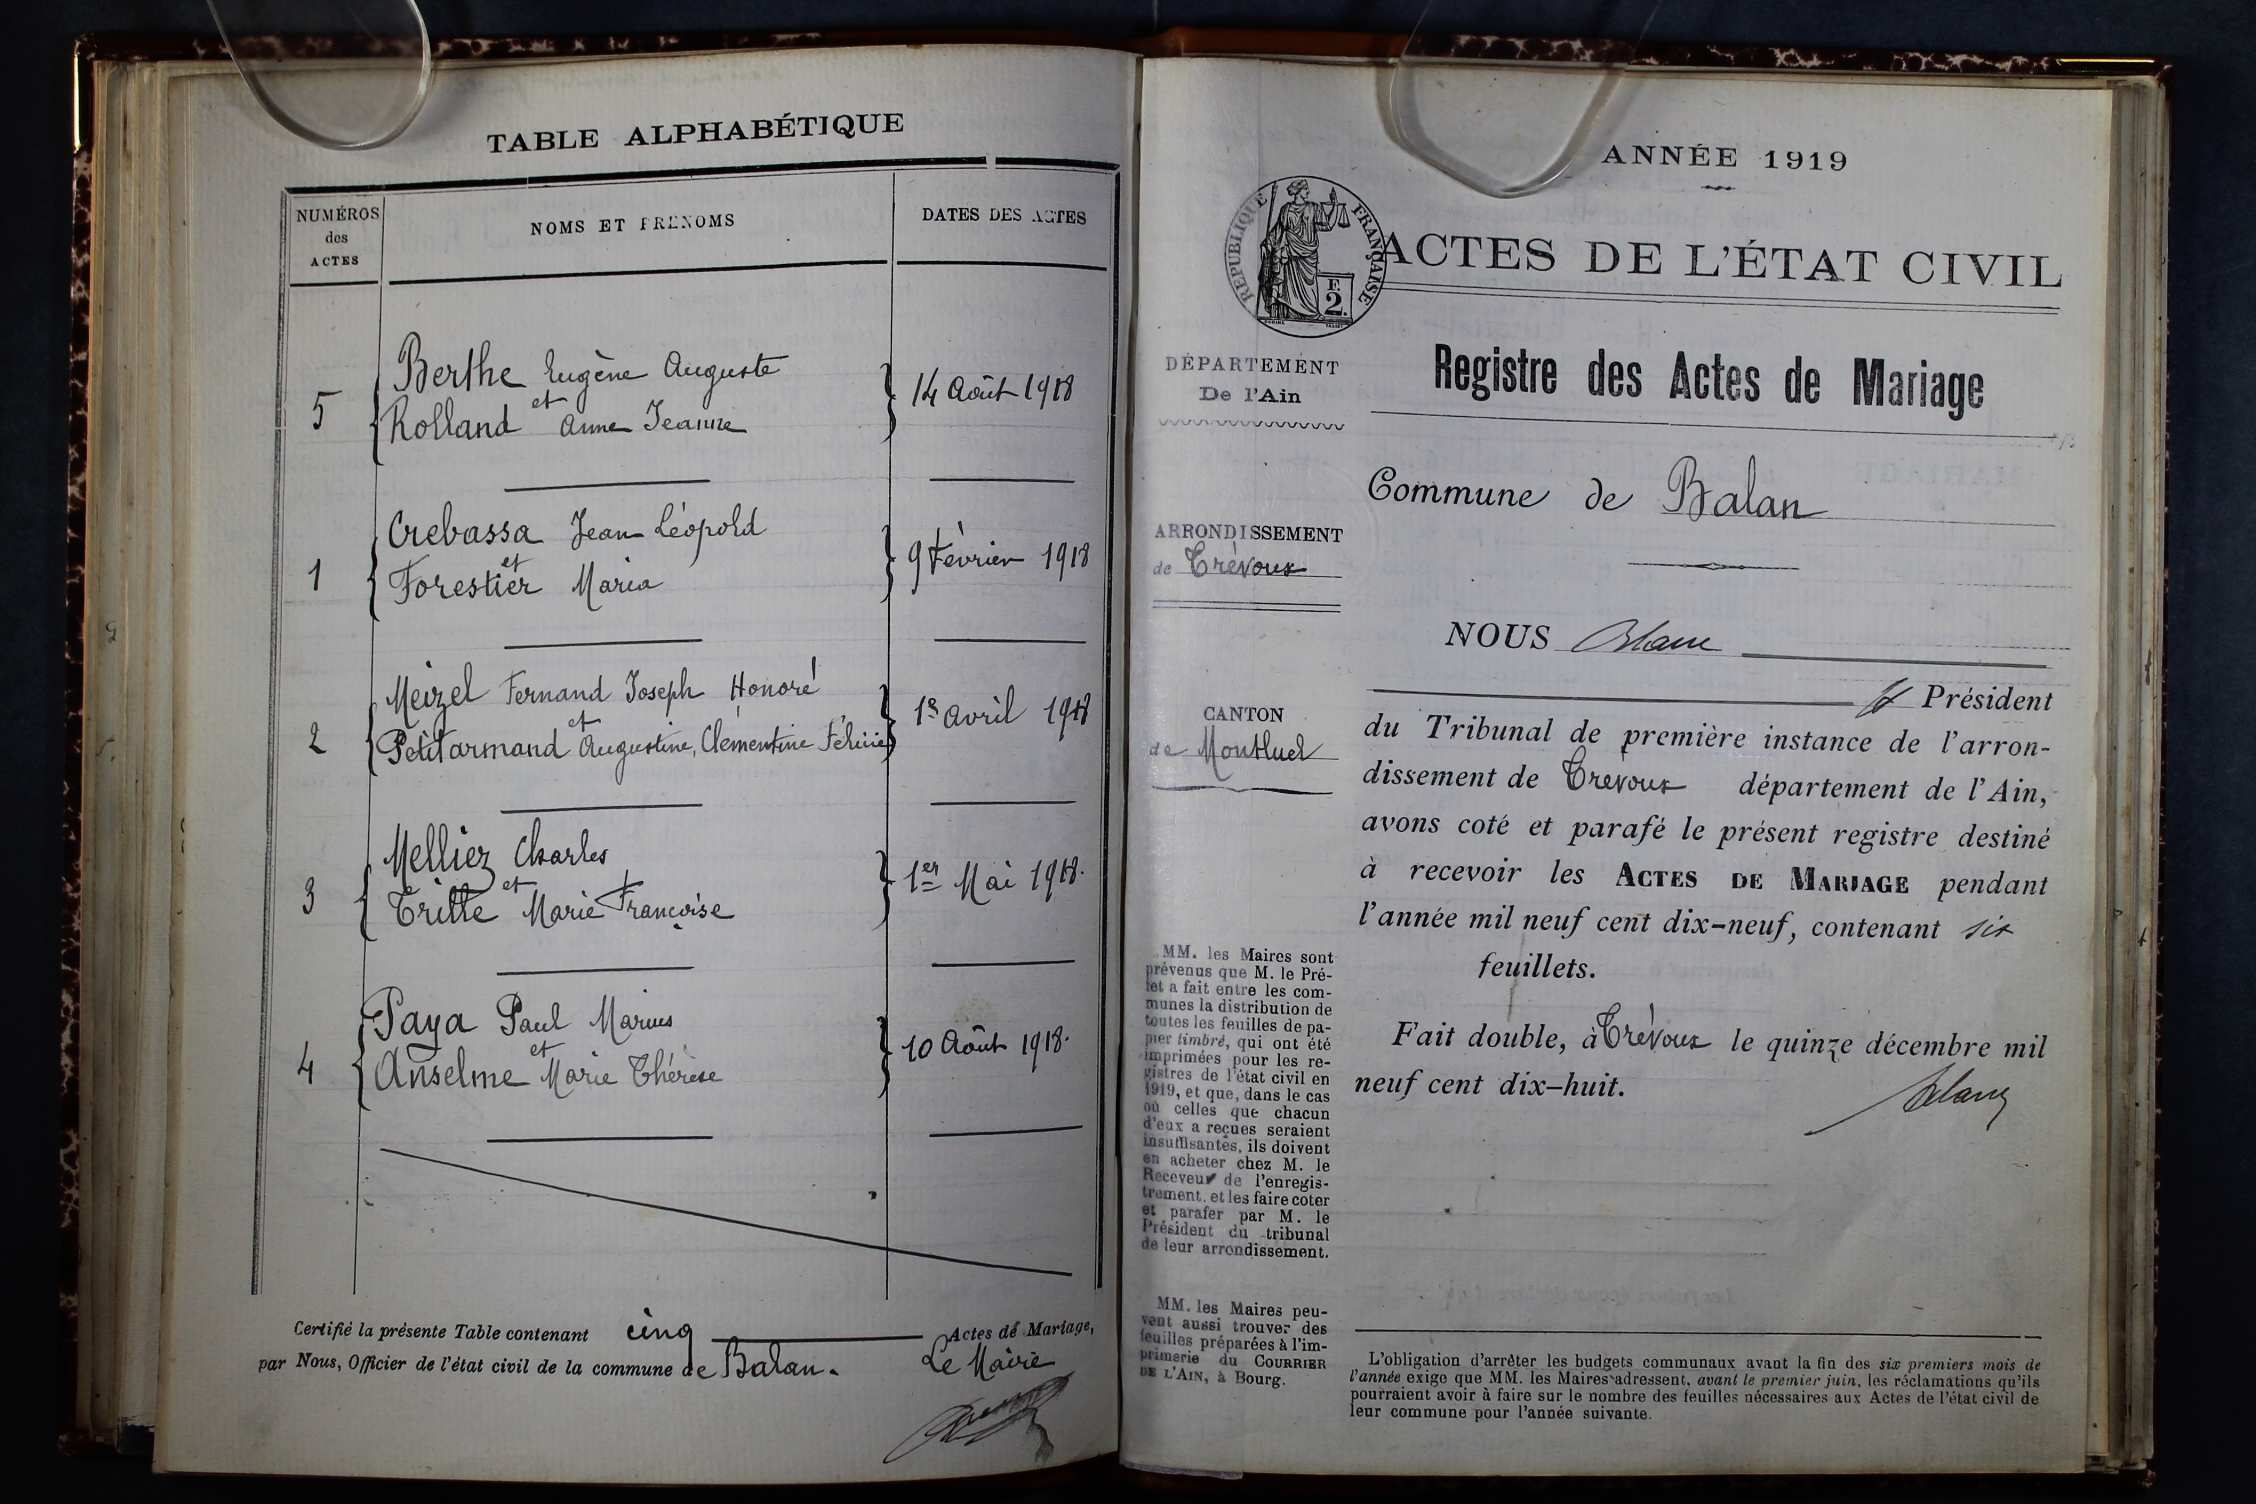 TABLE ALPHABÉTIQUE
NUMÉROS
des
ACTES
NOMS ET PRÉNOMS
DATES DES ACTES
5
Berthe Eugène Auguste
et
Rolland Anne Jeanne
14 Août 1918
1
Crebassa Jean Léopold
et
Forestier Maria
9 Février 1918
2
Meizel Fernand Joseph Honoré
et
Petitarmand Augustine, Clémentine
avril 1918
3
Melliez Charles
et
Tritte Marie Françoise
1er Mai 1918.
4
Paya Paul Marius
et
Anselme Marie Thérèse
10 Août 1918.
Certifié la présente Table contenant cinq Actes de Mariage,
par Nous, Officier de l'état civil de la commune de Balan.
Le Maire
ANNÉE 1919
RÉPUBLIQUE FRANÇAISE
F.
2.
ACTES DE L'ÉTAT CIVIL
DÉPARTEMENT
De l'Ain
Registre des Actes de Mariage
Commune de Balan
ARRONDISSEMENT
de Trévoux
CANTON
de Montluel
NOUS Blanc
Président
du Tribunal de première instance de l'arron-
dissement de Trévoux département de l'Ain,
avons coté et parafé le présent registre destiné
à recevoir les ACTES DE MARIAGE pendant
l'année mil neuf cent dix-neuf, contenant six
feuillets.
Fait double, à Trévoux le quinze décembre mil
neuf cent dix-huit.
Blanc
MM. les Maires sont
prévenus que M. le Pré-
fet a fait entre les com-
munes la distribution de
toutes les feuilles de pa-
pier timbré, qui ont été
imprimées pour les re-
gistres de l'état civil en
1919, et que, dans le cas
où celles que chacun
d'eux a reçues seraient
insuffisantes, ils doivent
en acheter chez M. le
Receveur de l'enregis-
trement, et les faire coter
et parafer par M. le
Président du tribunal
de leur arrondissement.
MM. les Maires peu-
vent aussi trouver des
feuilles préparées à l'im-
primerie du COURRIER
DE L'AIN, à Bourg.
L'obligation d'arrêter les budgets communaux avant la fin des six premiers mois de
l'année exige que MM. les Maires adressent, avant le premier juin, les réclamations qu'ils
pourraient avoir à faire sur le nombre des feuilles nécessaires aux Actes de l'état civil de
leur commune pour l'année suivante.